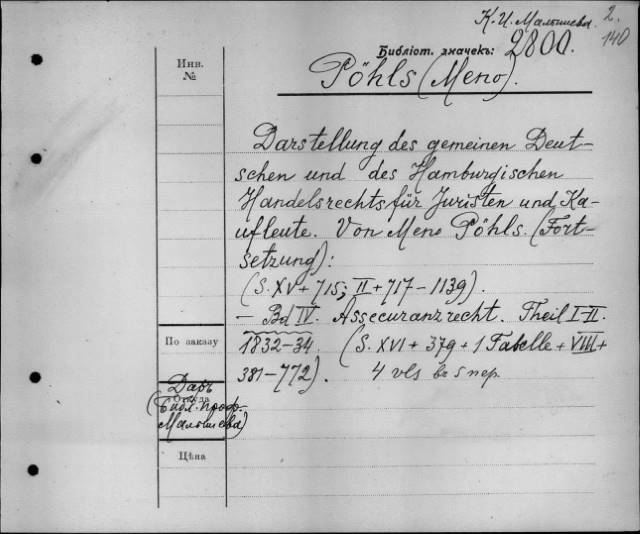 К. И. Малышева. 2.
140
Библіот. значекъ: 2800.
Инв.
№
Pöhls (Meno).
Darstellung des gemeinen Deut-
schen und des Hamburgischen
Handelsrechts für Juristen und Ka-
ufleute. Von Meno Pöhls. (Fort-
setzung):
(S. XV + 715; II + 717-1139).
- Bd IV. Assecuranzrecht. Theil I-II.
По заказу
1832-34 (S. XVI + 379 + 1 Tabelle + VIII +
381-772). 4 vls въ 5 пер.
Даръ
Откуда
(Библ. проф.
Малышева)
Цѣна